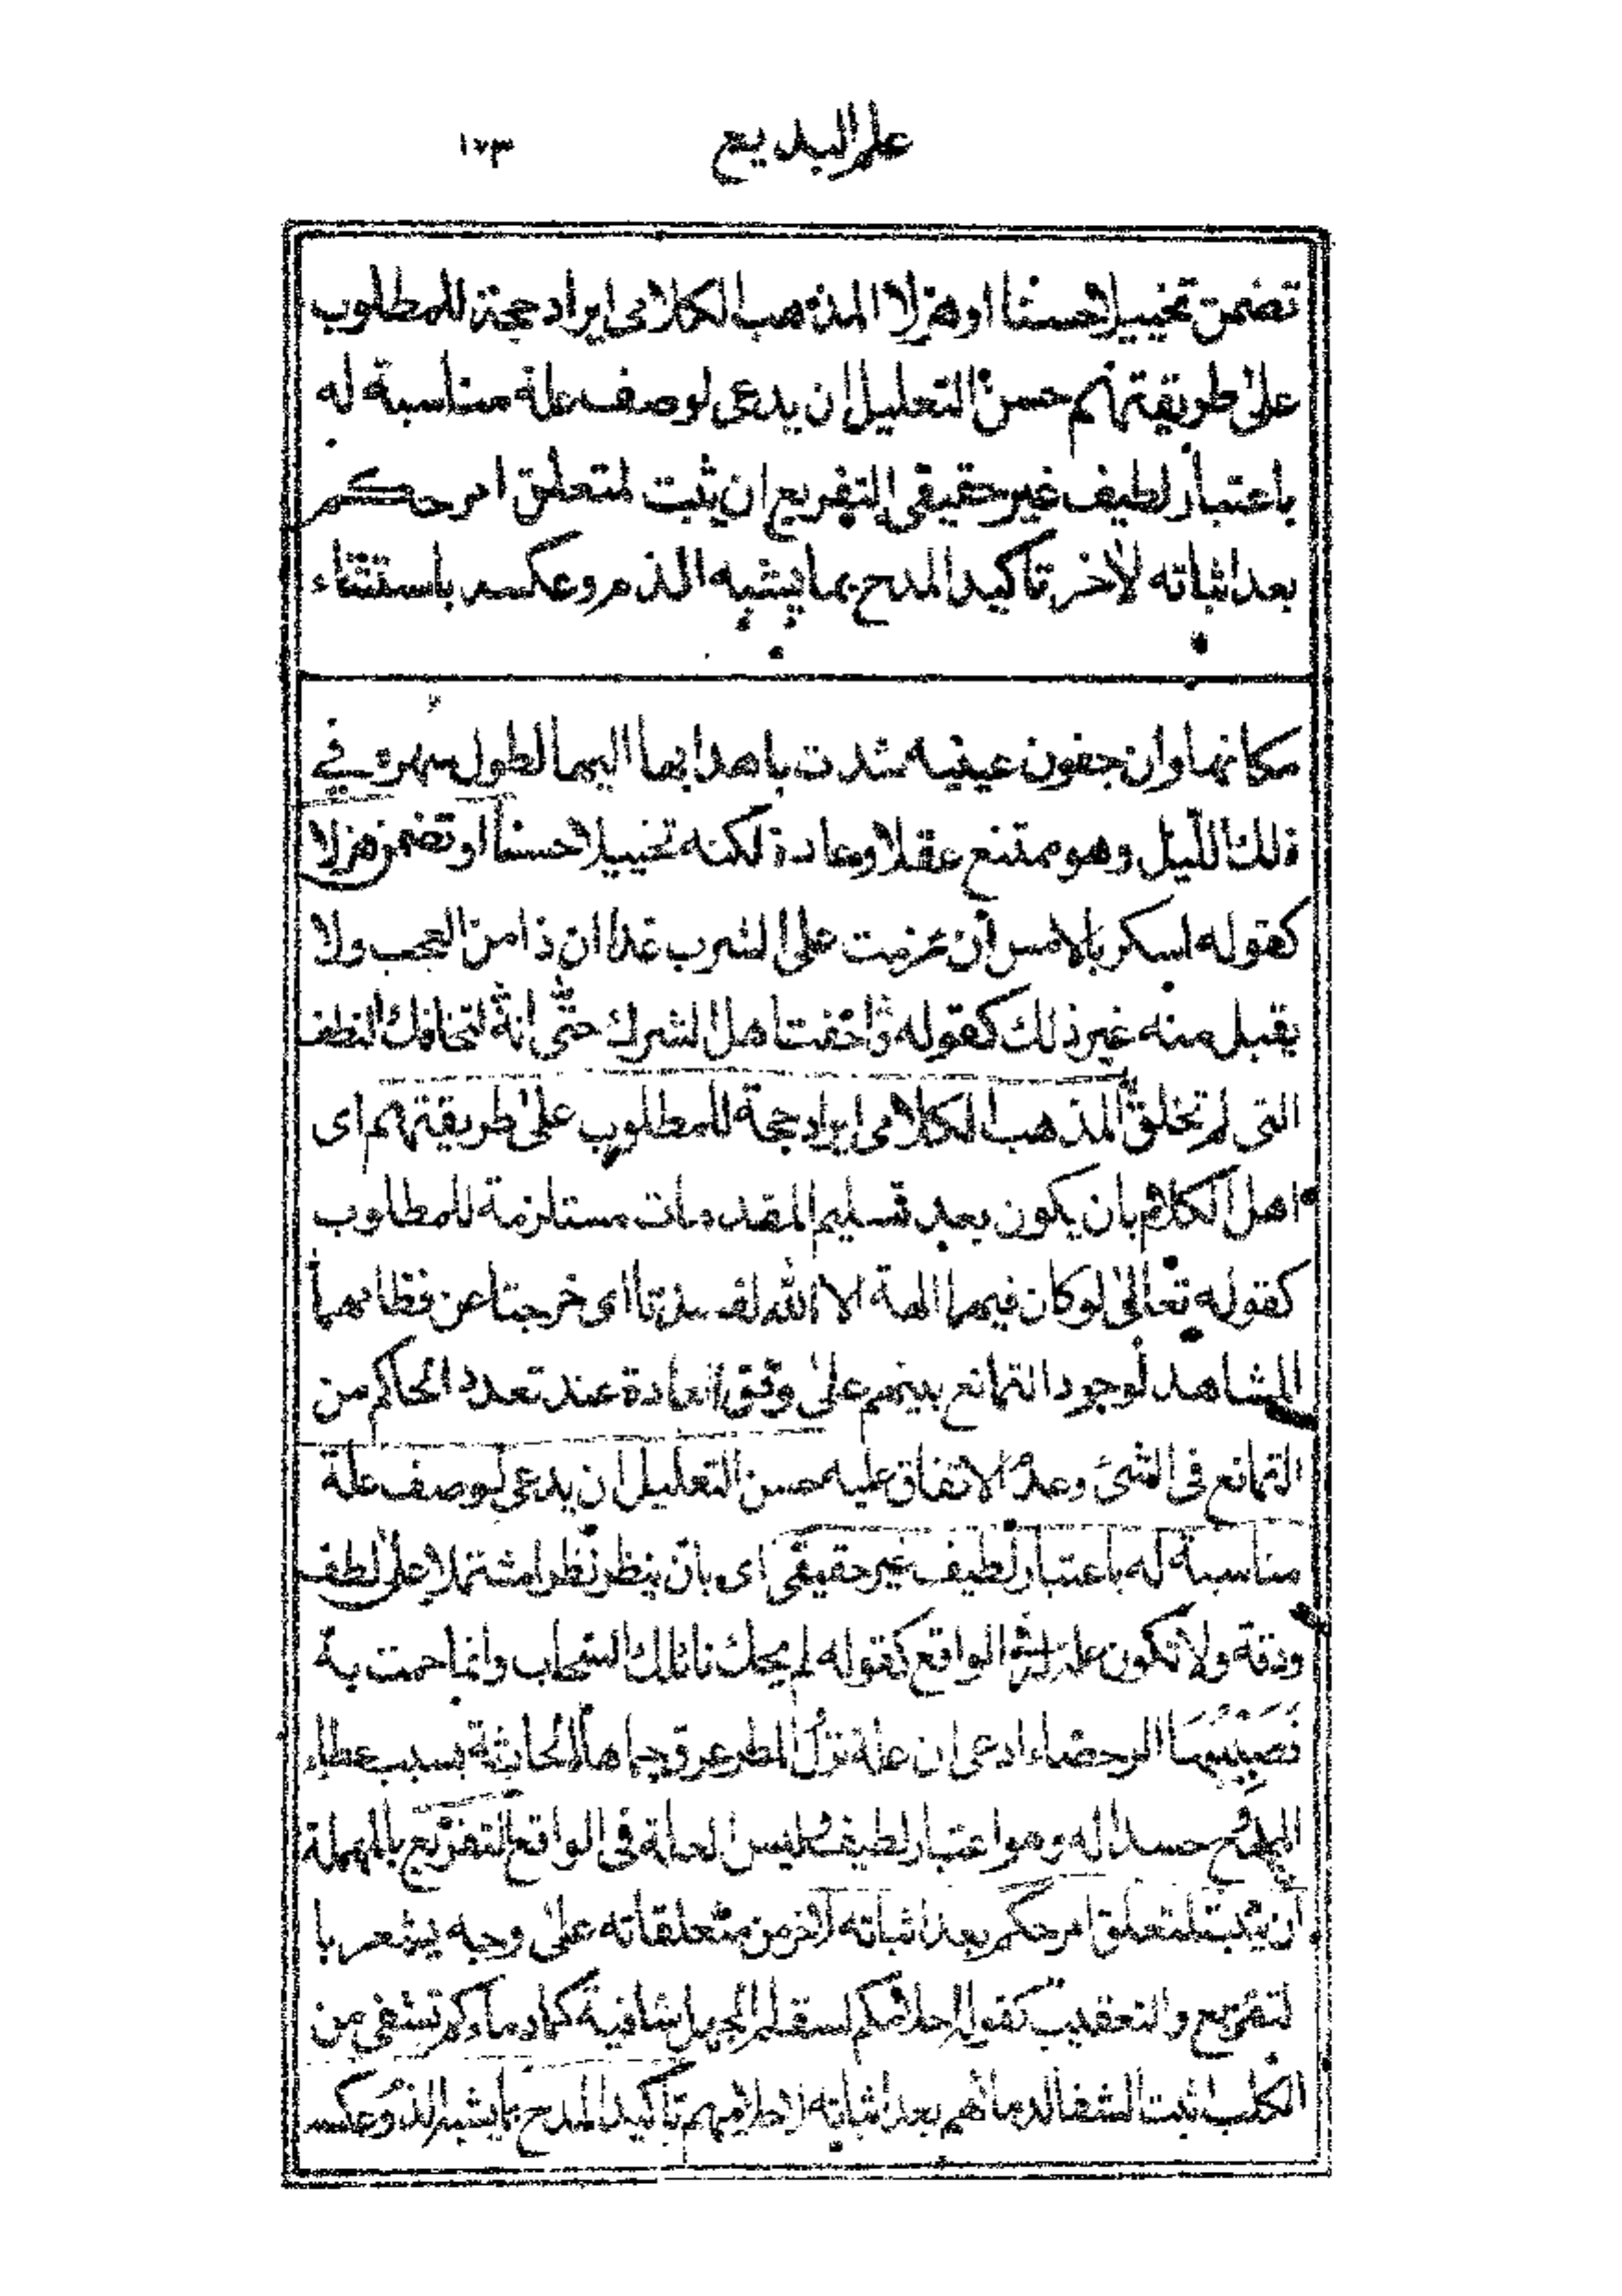 علم البديع ١٧٣
تضمن تخييلا حسنا او هزلا المذهب الكلامى ايراد حجة للمطلوب
على طريقتهم حسن التعليل ان يدعى لوصف علة مناسبة له
باعتبار لطيف غير حقيقى التفريع ان يثبت لمتعلق امر حكم
بعد اثباته لاخر تاكيد المدح بما يشبه الذم وعكسه باستثناء
مكانها وان جفون عينيه شدت باهدابها اليها لطول سهره في
ذلك الليل وهو ممتنع عقلا وعادة لكنه تخييلا حسنا او تضمن هزلا
كقوله اسكر بالامس ان عزمت على الشرب غدا ان ذا من العجب ولا
يقبل منه غير ذلك كقوله واخفت اهل الشرك حتى انه لتخافك النطف
التى لم تخلق المذهب الكلامى ايراد حجة للمطلوب على طريقتهم اى
اهل الكلام بان يكون بعد تسليم المقدمات مستلزمة للمطلوب
كقوله تعالى لو كان فيهما الهة الا الله لفسدتا اى خرجتا عن نظامهما
المشاهد لوجود التمانع بينهم على وفق العادة عند تعدد الحاكم من
التمانع فى الشئ وعدم الاتفاق عليه حسن التعليل ان يدعى لوصف علة
مناسبة له باعتبار لطيف غير حقيقى اى بان ينظر نظرا مشتملا على لطف
ودقة ولا تكون علة له فى الواقع كقوله لم يحك نائلك السحاب وانما حمت به
فصبيبها الرحضاء ادعى ان علة نزل المطر عرق حماها الحادثة بسبب عطاء
الممدوح حسدا له وهو اعتبار لطيف ليس العلة فى الواقع التفريع بالمهملة
ان يثبت لمتعلق امر حكم بعد اثباته لاخر من متعلقاته على وجه يشعر با
لتفريع والتعقيب كقوله احلامكم لسقام الجهل شافية كما دماؤكم تشفى من
الكلب اثبت الشفا لدمائهم بعد اثباته لاحلامهم تاكيد المدح بما يشبه الذم وعكسه